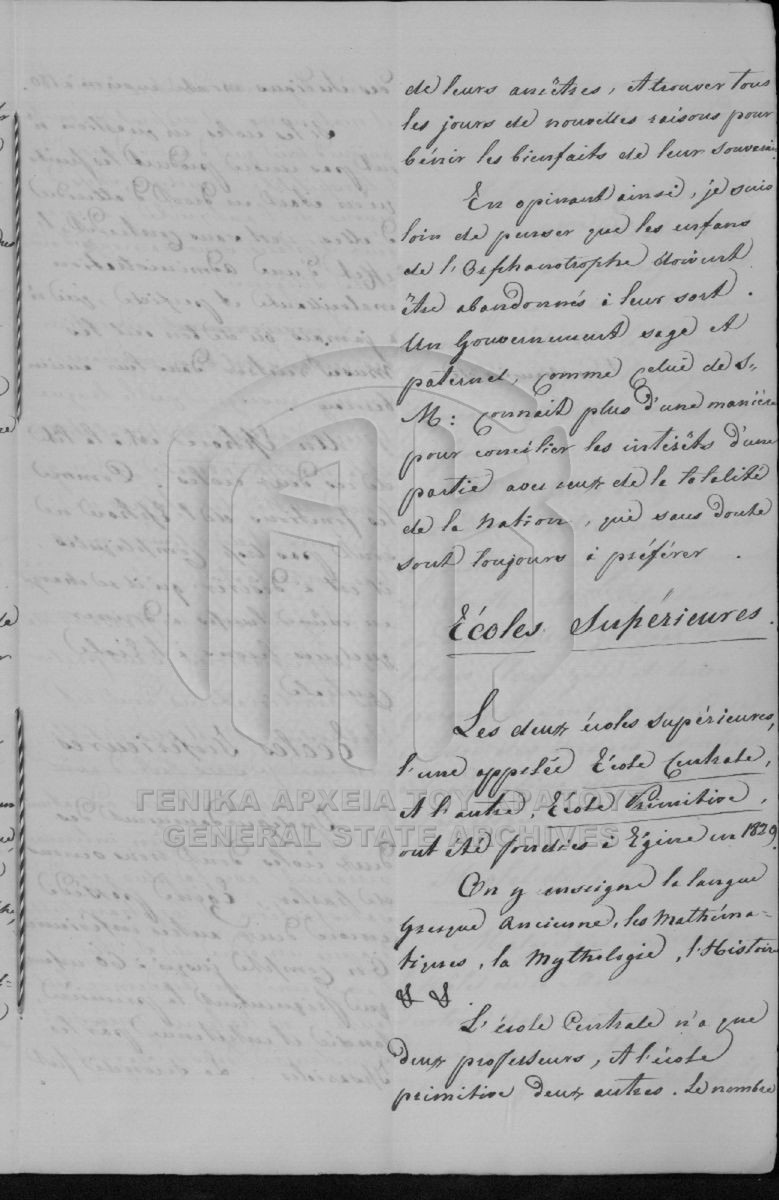 de leurs ancêtres, et trouver tous
les jours de nouvelles raisons pour
bénir les bienfaits de leur souverain.
En opinant ainsi, je suis
loin de penser que les enfans
de l'Orphanotrophe doivent
être abandonnés à leur sort.
Un Gouvernement sage et
paternel, comme celui de S.
M: connait plus d'une manière
pour concilier les intérêts d'une
partie avec ceux de la totalité
de la nation, qui sans doute
sont toujours à préférer.
Écoles Supérieures.
Les deux écoles supérieures,
l'une appelée École Centrale,
et l'autre, École Primitive,
ΓΕΝΙΚΑ ΑΡΧΕΙΑ ΤΟΥ ΚΡΑΤΟΥΣ
GENERAL STATE ARCHIVES
ont été fondées à Égine en 1829.
On y enseigne la langue
Grecque Ancienne, les Mathéma-
tiques, la Mythologie, l'Histoire
& &
L'école Centrale n'a que
deux professeurs, et l'école
primitive deux autres. Le nombre